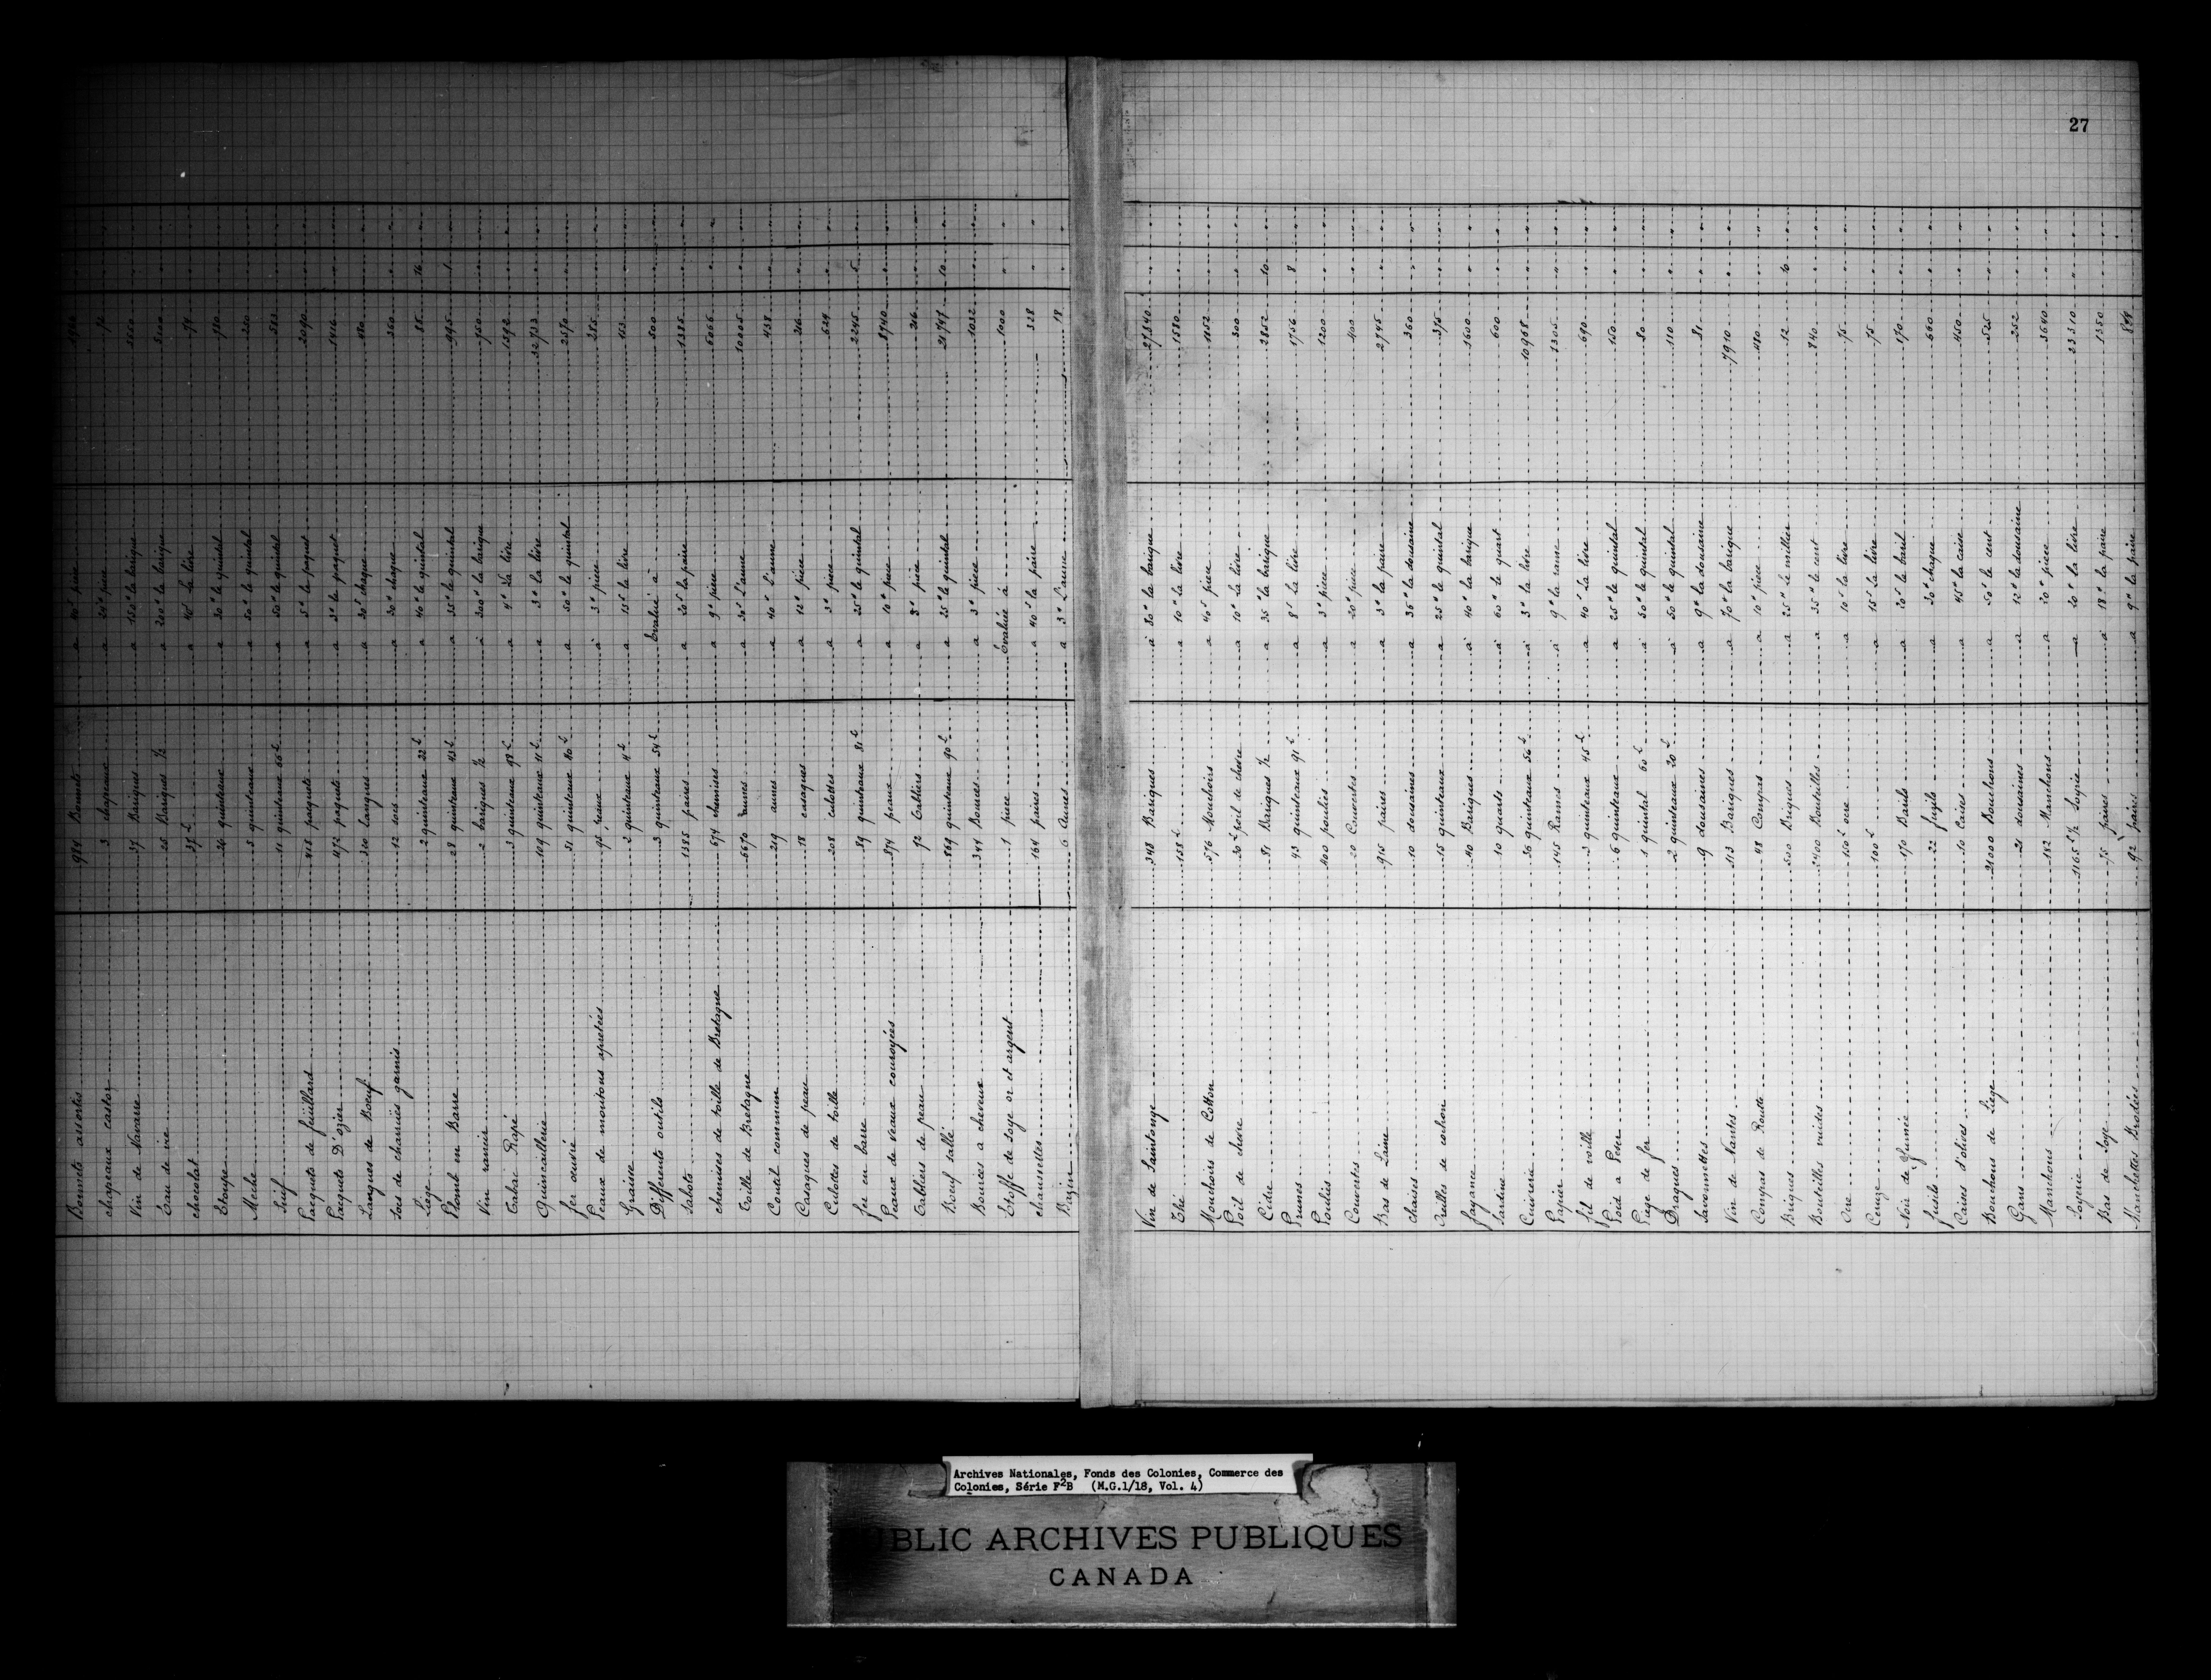 27
Bonnets assortis 984 Bonnets a 40s piece
chapeaux castor 3 chapeaux a 24# piece 72
Vin de Navarre 37 Bariques a 150# la barique 5550
Eau de vie 25 Bariques ½ a 200# la barique 5100
chocolat 37 L a 40s La livre 74
Etoupe 26 quinteaux a 30# le quintal 780
Meche 5 quinteaux a 50# le quintal 250
Suif 11 quinteaux 66 L a 50# le quintal 583
Paquets de feüillard 418 paquets a 5# le paquet 2090
Paquets D'ozier 472 paquets a 3# le paquet 1416
Langues de Boeuf 320 Langues a 30s chaque 480
Socs de charrües garnis 12 socs a 30# chaque 360
Liege 2 quinteaux 22 L a 40# le quintal 88 16
Plomb en Barre 28 quinteaux 43 L a 35# le quintal 995 1
Vin rancio 2 bariques ½ a 300# la barique 750
Tabac Rapé 3 quinteaux 98 L a 4# La livre 1592
Quincaillerie 109 quinteaux 11 L a 3# la livre 32733
fer oeuvré 51 quinteaux 40 L a 50# le quintal 2570
Peaux de moutons apretées 95 peaux a 3# piece 285
Graine 2 quinteaux 4 L a 15s la livre 153
Differents outils 3 quinteaux 54 L Evalué a 500
Sabots 1385 paires a 20s la paire 1385
chemises de toille de Bretagne 674 chemises a 9# piece 6066
Toille de Bretagne 6670 aunes a 30s L'aune 10005
Coutil commun 219 aunes a 40s L'aune 438
Casaques de peau 18 casaques a 12# piece 216
Culottes de toille 208 culottes a 3# piece 624
fer en barre 89 quinteaux 81 L a 25# le quintal 2245 5
Peaux de Veaux couroyées 874 peaux a 10# piece 8740
Tabliers de peau 72 Tabliers a 3# piece 216
Boeuf sallé 869 quinteaux 90 L a 25# le quintal 21747 10
Bources a cheveux 344 Bources a 3# piece 1032
Etoffe de soye or et argent 1 piece Evaluée à 1000
chaussettes 164 paires a 40s la paire 328
Bazin 6 Aunes a 3# L'aune 18
Vin de Saintonge 348 Bariques à 80# la barique 27840
Thé 158 L a 10# la livre 1580
Mouchoirs de Cotton 576 Mouchoirs a 40s piece 1152
Poil de chevre 30 L poil de chevre a 10# La livre 300
Cidre 81 Bariques ½ a 35# la barique 2852 10
Prunes 43 quinteaux 91 L a 8s La livre 1756 8
Poulies 400 poulies a 3# piece 1200
Couvertes 20 Couvertes a 20# piece 400
Bas de Laine 915 paires a 3# la paire 2745
chaises 10 dousaines a 36# la dousaine 360
Oreilles de cochon 15 quinteaux a 25# le quintal 375
fayance 40 Bariques à 40# la barique 1600
Sardine 10 quarts à 60# le quart 600
Cuivrerie 36 quinteaux 56 L à 3# la livre 10968
Papier 145 Rames à 9# la rame 1305
fil de voille 3 quinteaux 45 L a 40s La livre 690
Poid a Peser 6 quinteaux a 25# le quintal 150
Puge de fer 1 quintal 60 L à 50# le quintal 80
Dragues 2 quinteaux 20 L à 50# le quintal 110
Savonnettes 9 dousaines a 9# la dousaine 81
Vin de Nantes 113 Bariques a 70# la barique 7910
Compas de Routte 48 Compas a 10# piece 480
Briques 500 Briques a 25# Le millier 12 10
Bouteilles vuides 2400 Bouteilles a 35# le cent 840
Ocre 150 L ocre a 10s la livre 75
Ceruze 100 L a 15s La livre 75
Noir de fumée 170 Barils a 20s le baril 170
fusils 22 fuzils a 30# chaque 660
Caises d'olives 10 Caises a 45# la caise 450
Bouchons de Liege 21000 Bouchons a 50s le cent 525
Gans 21 dousaines a 12# la dousaine 252
Manchons 182 Manchons a 20# piece 3640
Soyerie 1165 L ½ Soyrie a 20# la livre 23310
Bas de Soye 75 paires a 18# la paire 1350
Manchettes Brodées 92 paires a 9# la paire
Archives Nationales, Fonds des Colonies, Commerce des
Colonies, Série F2B (M.G.1/18, Vol. 4)
PUBLIC ARCHIVES PUBLIQUES
CANADA